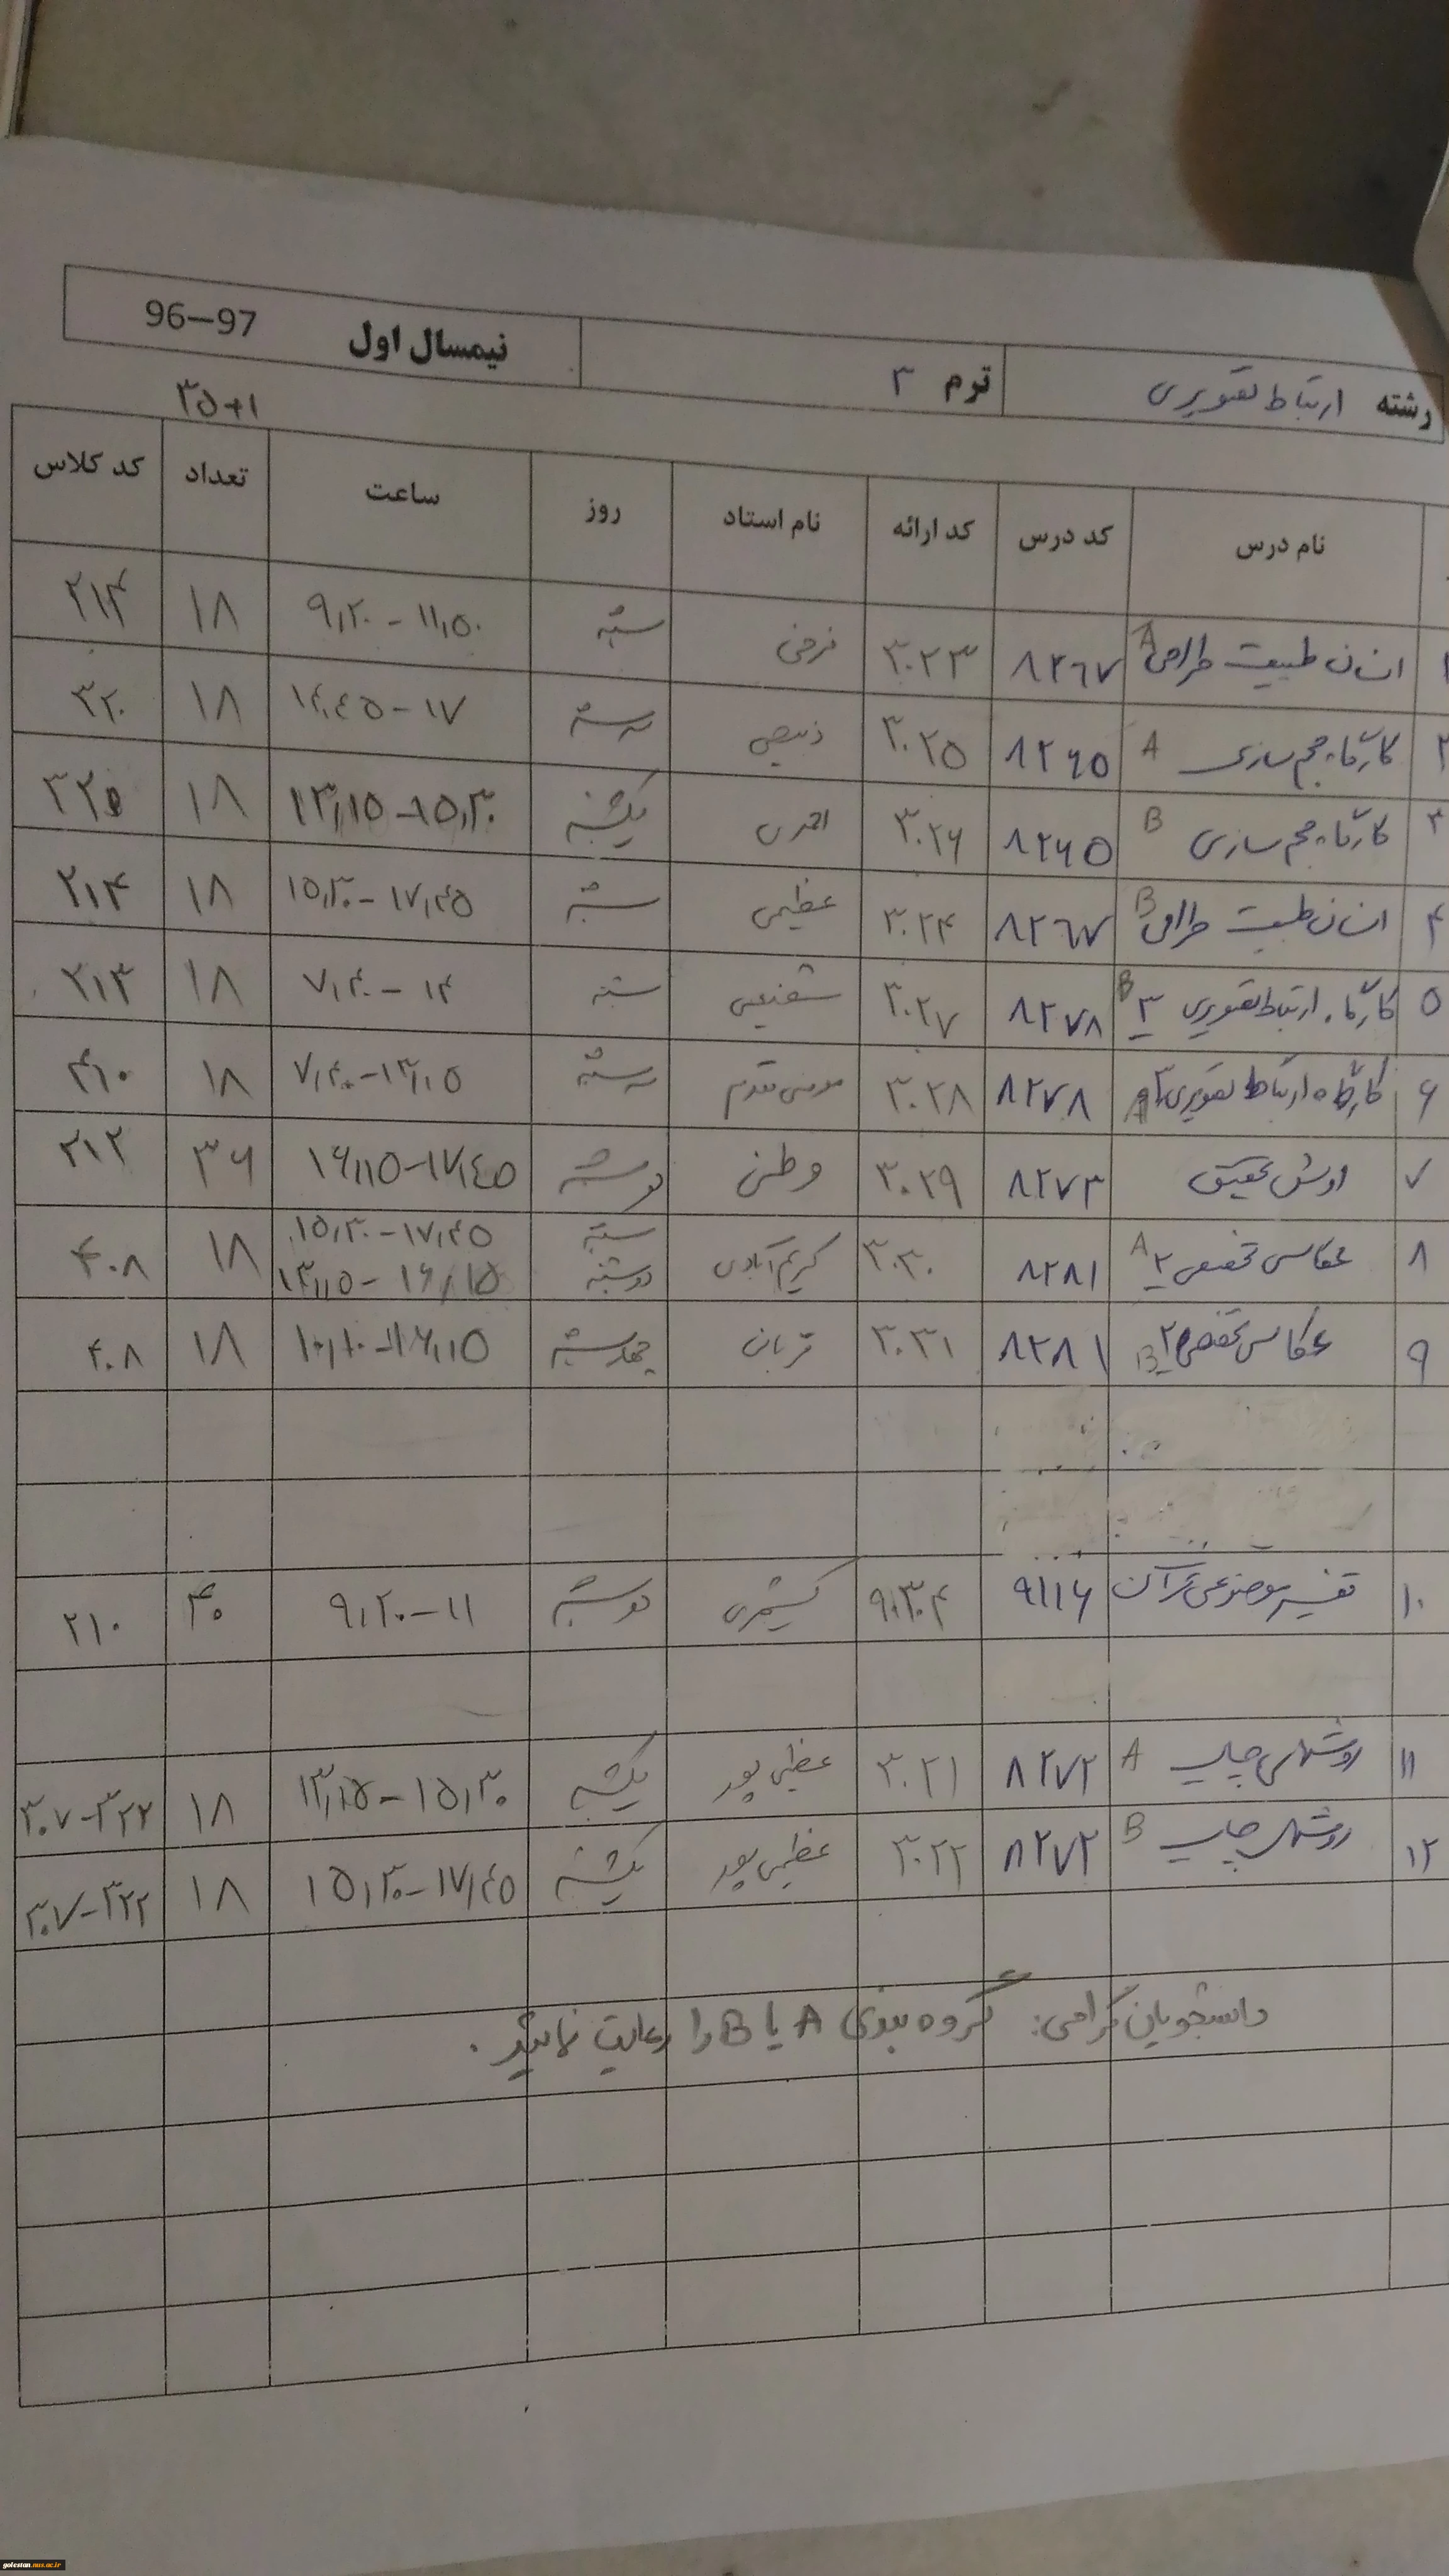 رشته ارتباط تصویری ترم ۳ نیمسال اول 96–97
۳۵+۱
نام درس کد درس کد ارائه نام استاد روز ساعت تعداد کد کلاس
۱ انسان طبیعت طراحی A ۸۲۶۷ ۳۰۲۳ فرخی شنبه ۹,۲۰ - ۱۱,۵۰ ۱۸ ۲۱۴
۲ کارگاه حجم سازی A ۸۲۶۵ ۳۰۲۵ ذبیحی سه شنبه ۱۴,۴۵ - ۱۷ ۱۸ ۳۲۰
۳ کارگاه حجم سازی B ۸۲۶۵ ۳۰۲۶ احمدی یکشنبه ۱۳,۱۵ - ۱۵,۳۰ ۱۸
۴ انسان طبیعت طراحی B ۸۲۶۷ ۳۰۲۴ عظیمی شنبه ۱۵,۳۰ - ۱۷,۴۵ ۱۸ ۲۱۴
۵ کارگاه ارتباط تصویری ۳ B ۸۲۷۸ ۳۰۲۷ شفیعی شنبه ۷,۴۰ - ۱۴ ۱۸ ۲۱۳
۶ کارگاه ارتباط تصویری ۳ A ۸۲۷۸ ۳۰۲۸ سه شنبه ۷,۴۰ - ۱۳,۱۵ ۱۸ ۴۱۰
۷ روش تحقیق ۸۲۷۳ ۳۰۲۹ وطنی دوشنبه ۱۶,۱۵ - ۱۷,۴۵ ۳۶ ۲۱۲
۸ عکاسی تخصصی ۲ A ۸۲۸۱ ۳۰۳۰ کریم آبادی شنبه ۱۵,۳۰ - ۱۷,۴۵ ۱۸ ۴۰۸
دوشنبه ۱۳,۱۵ - ۱۶,۱۵
۹ عکاسی تخصصی ۲ B ۸۲۸۱ ۳۰۳۱ قربانی چهارشنبه ۱۰,۱۰ - ۱۶,۱۵ ۱۸ ۴۰۸
۱۰ تفسیر موضوعی قرآن ۹۱۱۶ ۹۰۳۰۴ کشمیری دوشنبه ۹,۲۰ - ۱۱ ۴۰ ۲۱۰
۱۱ روشهای چاپ A ۸۲۷۲ ۳۰۲۱ عظیمی پور یکشنبه ۱۳,۱۵ - ۱۵,۳۰ ۱۸ ۳۰۷-۳۲۲
۱۲ روشهای چاپ B ۸۲۷۲ ۳۰۲۲ عظیمی پور یکشنبه ۱۵,۳۰ - ۱۷,۴۵ ۱۸ ۳۰۷-۳۲۲
دانشجویان گرامی: گروه بندی A یا B را رعایت نمائید .
golestan.nus.ac.ir